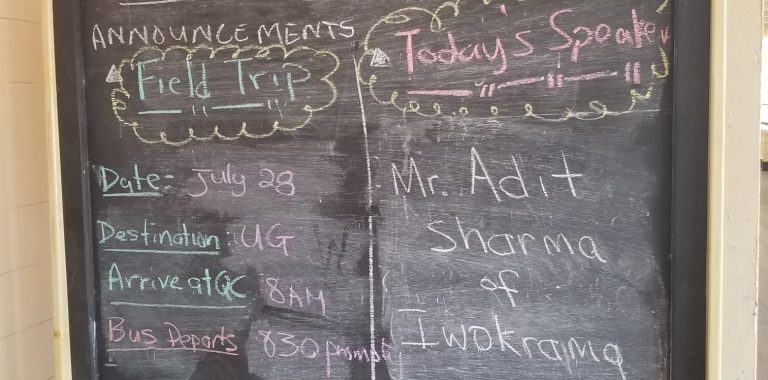 ANNOUNCEMENTS
Field Trip
Date:- July 28
Destination: UG
Arrive at QC 8AM
Bus Departs 830 promptly
Today's Speaker
Mr. Adit
Sharma
of
Iwokrama